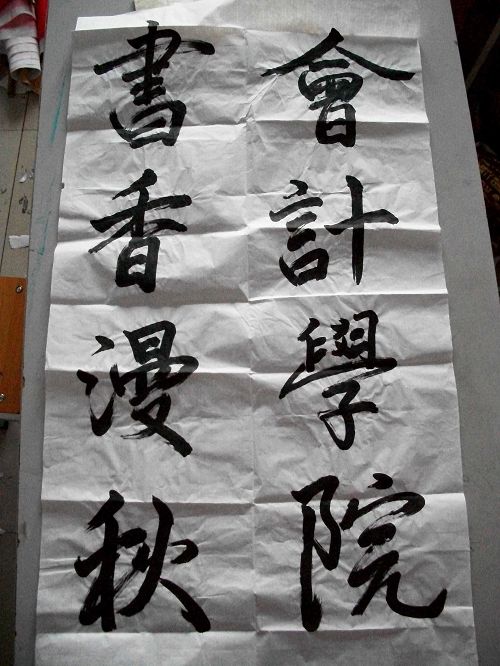 會計學院
書香漫秋